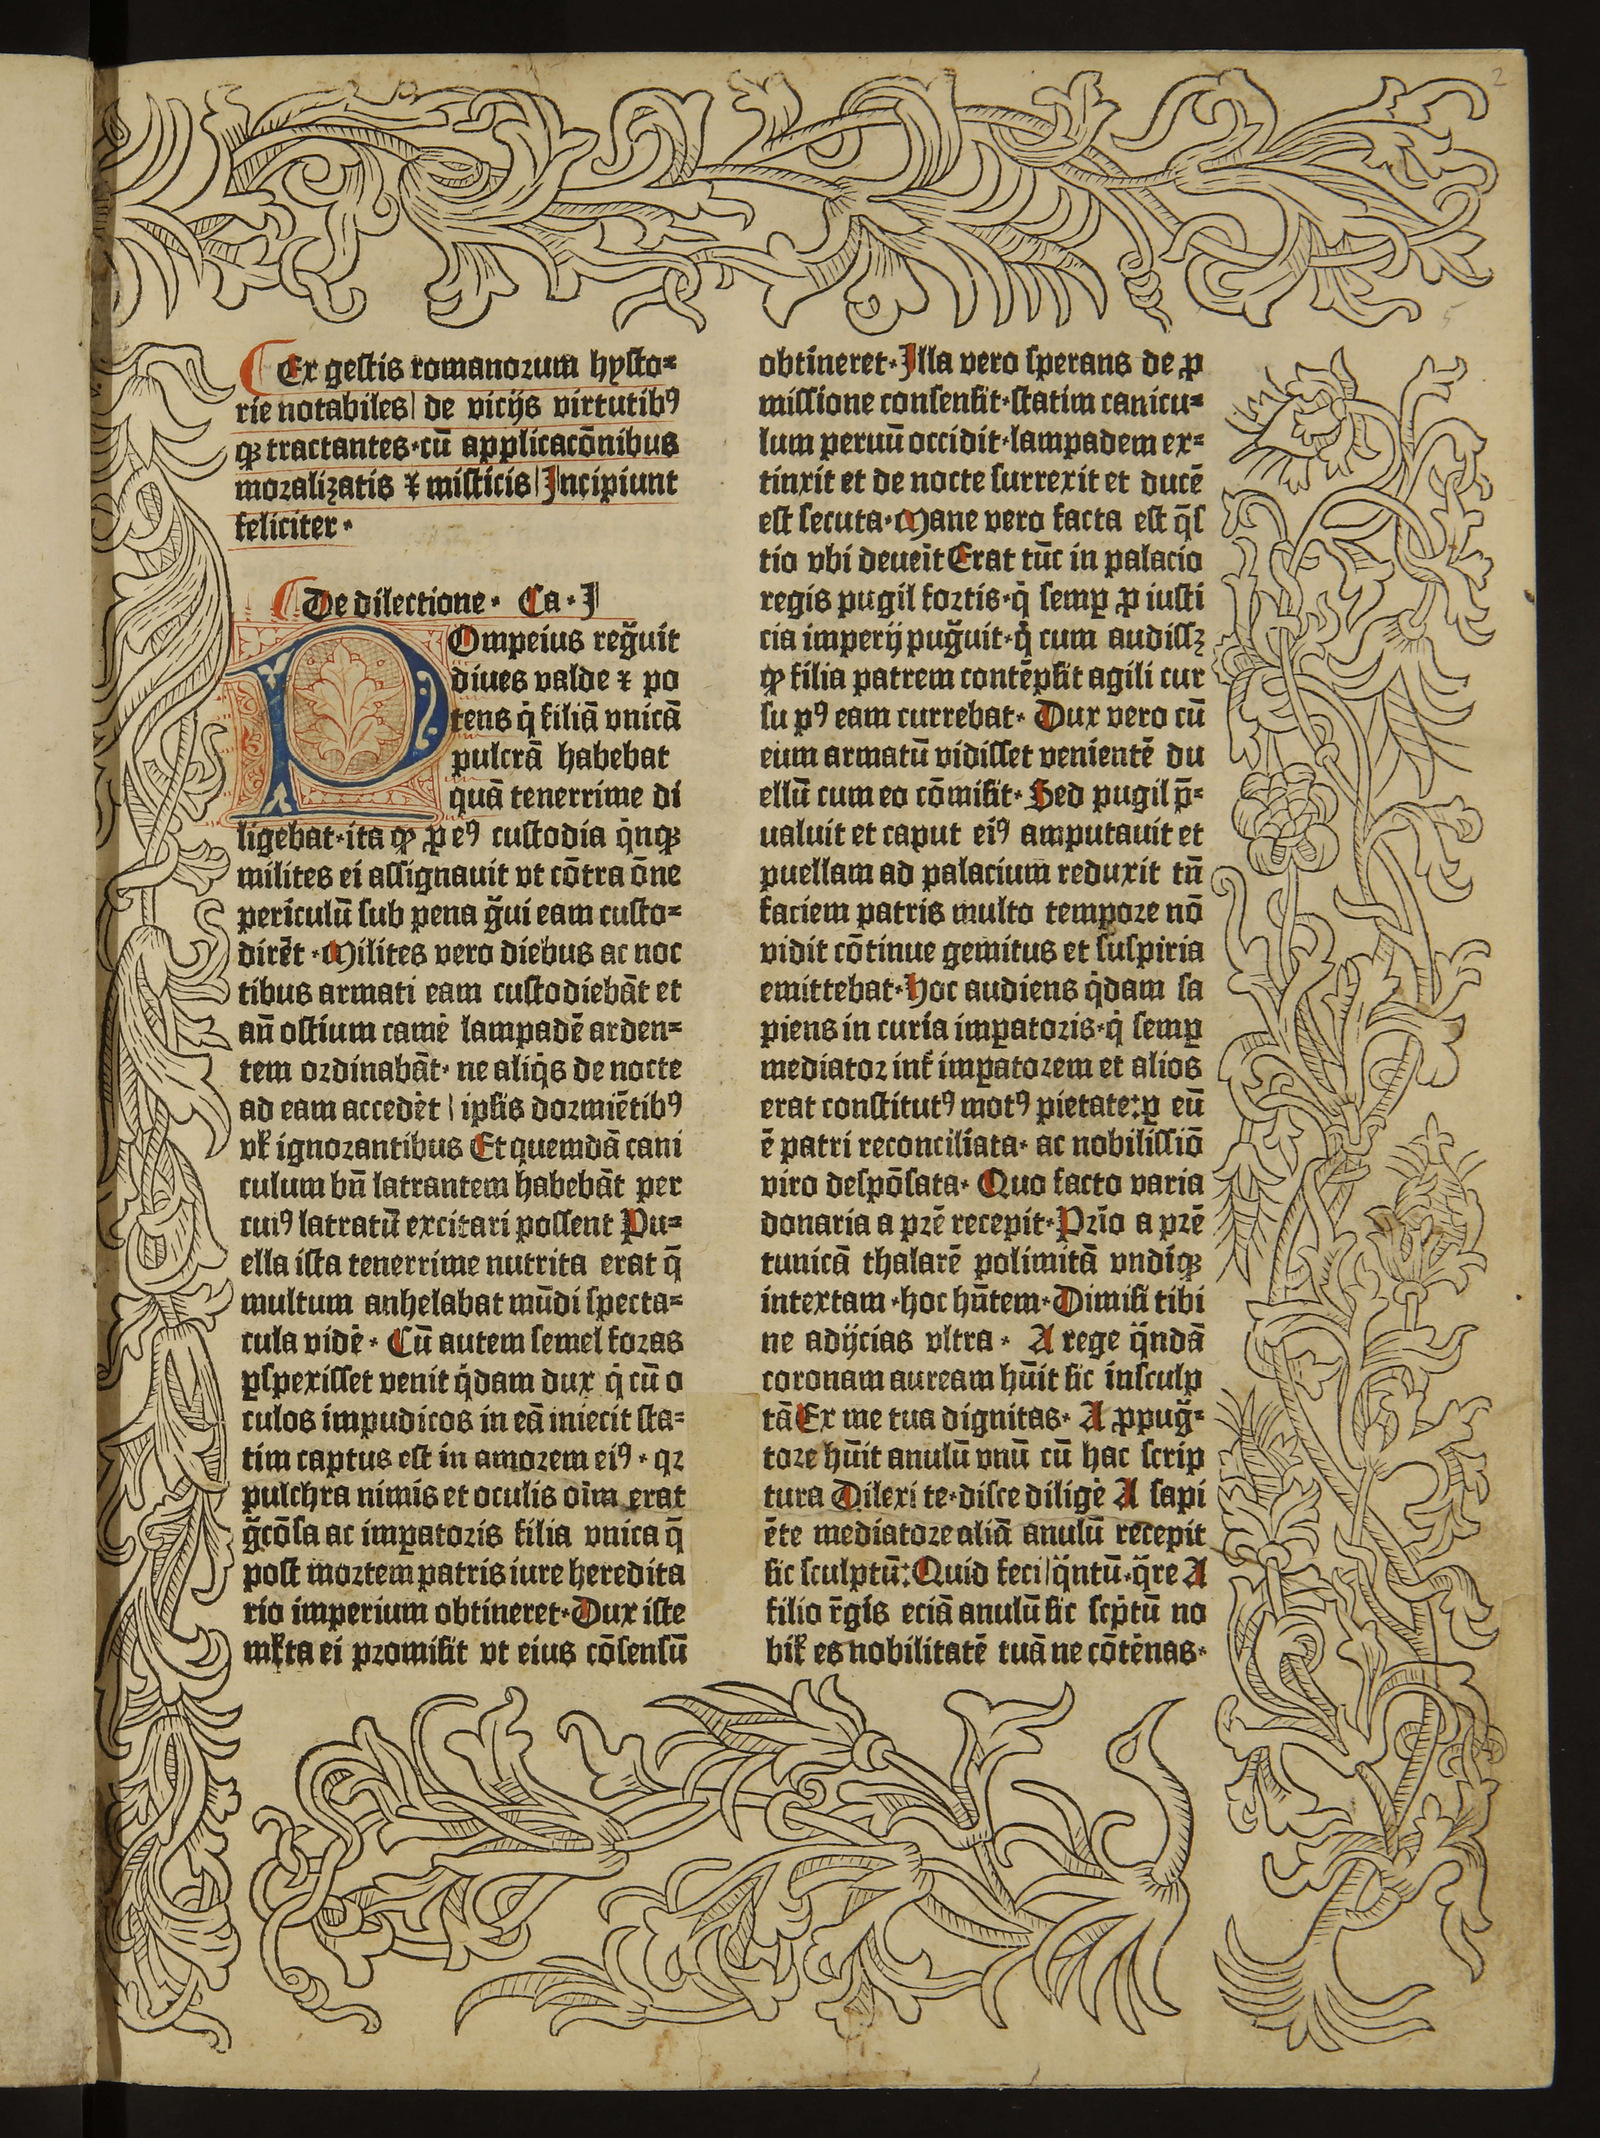 Ex gestis romanorum hysto⸗
rie notabiles| de vicijs virtutibꝰ
qꝫ tractantes·cū applicacōnibus
moralizatis ⁊ misticis|Incipiunt
feliciter·
De dilectione· Ca·I
POmpeius reg̅uit
diues valde ⁊ po
tens q̇ filiā vnicā
pulcrā habebat
quā tenerrime di
ligebat·ita ꝙ ꝓ eꝰ custodia q̇nqꝫ
milites ei assignauit vt cōtra ōne
periculū sub pena g̅ui eam custo⸗
dirēt·Milites vero diebus ac noc
tibus armati eam custodiebāt et
an̄ ostium camė lampadē arden⸗
tem ordinabāt· ne aliq̇s de nocte
ad eam accedėt | ipsis dormiētibꝰ
vł ignorantibus Et quemdā cani
culum bn̄ latrantem habebāt per
cuiꝰ latratū excitari possent Pu⸗
ella ista tenerrime nutrita erat q̄
multum anhelabat mūdi specta⸗
cula vidė· Cū autem semel foras
ꝑspexisset venit q̇dam dux q̇ cū o
culos impudicos in eā iniecit sta⸗
tim captus est in amorem eiꝰ· qꝛ
pulchra nimis et oculis oīm erat
g̅cōsa ac imꝑatoris filia vnica q̄
post mortem patris iure heredita
rio imperium obtineret·Dux iste
mł̇ta ei promisit vt eius cōsensū
obtineret·Illa vero sperans de ꝓ
missione consensit·statim canicu⸗
lum peruū occidit·lampadem ex⸗
tinxit et de nocte surrexit et ducē
est secuta·Mane vero facta est q̄s
tio vbi deueīt Erat tūc in palacio
regis pugil fortis·q̇ semꝑ ꝓ iusti
cia imperij pug̅uit·q̇ cum audissꝫ
ꝙ filia patrem contēpsit agili cur
su pꝰ eam currebat· Dux vero cū
eum armatū vidisset venientē du
ellū cum eo cōmisit· Sed pugil p̄⸗
ualuit et caput eiꝰ amputauit et
puellam ad palacium reduxit tn̄
faciem patris multo tempore nō
vidit cōtinue gemitus et suspiria
emittebat·Hoc audiens q̇dam sa
piens in curia imꝑatoris·q̇ semꝑ
mediator inł imꝑatorem et alios
erat constitutꝰ motꝰ pietate:ꝑ eū
ē patri reconciliata· ac nobilissiō
viro despōsata· Quo facto varia
donaria a prē recepit·Prīo a prē
tunicā thalarē polimitā vndiqꝫ
intextam·hoc hn̄tem·Dimisi tibi
ne adijcias vltra· A rege q̈ndā
coronam auream hūit sic insculp
tā Ex me tua dignitas· A ꝓpug̅⸗
tore hūit anulū vnū cū hac scrip
tura Dilexi te·disce diligė A sapi
ēte mediatore aliā anulū recepit
sic sculptū:Quid feci|q̈ntū·q̈re A
filio r̄gis eciā anulū sic scp̄tū no
bił es nobilitatē tuā ne cōtēnas·